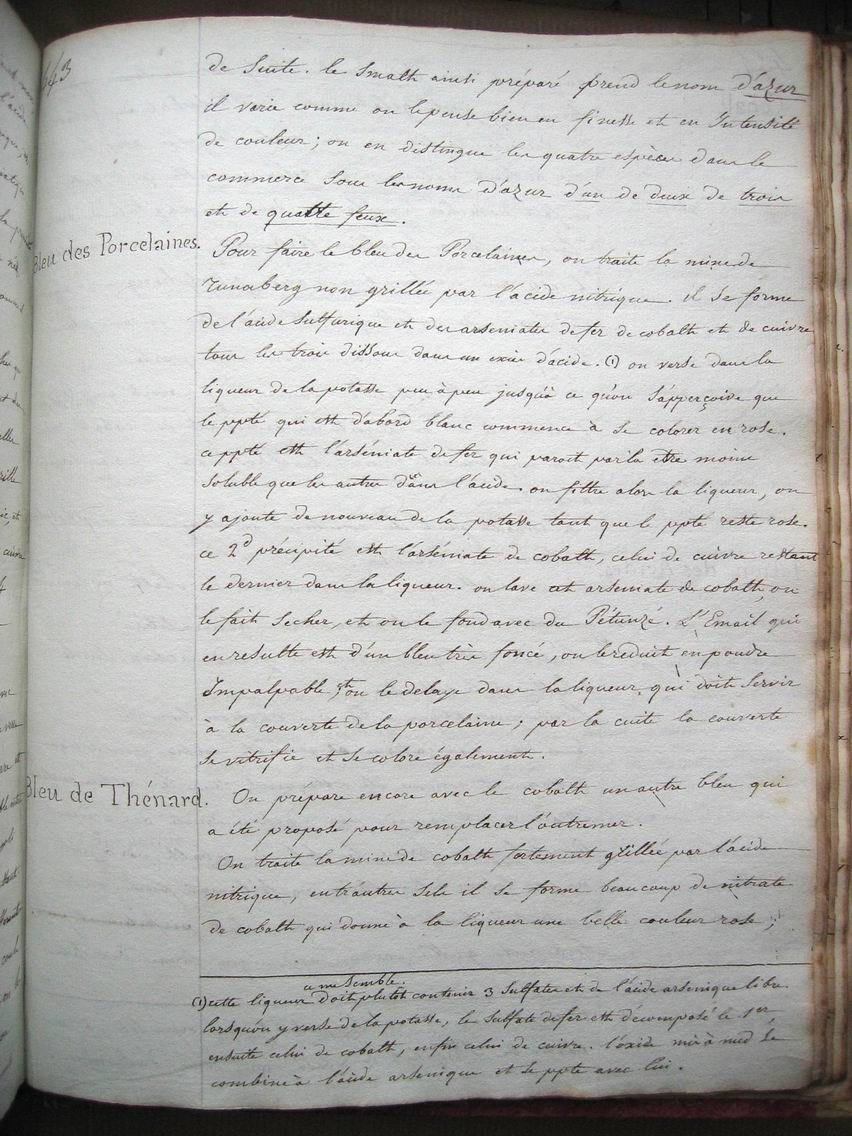 de suite. le Smalth ainsi préparé prend le nom d'azur
il varie comme on le pense bien en finesse et en Intensité
de couleur ; on en distingue les quatre espèces dans le
commerce sous les noms d'azur d'un de deux de trois
et de quatre feux.
Bleu des Porcelaines.
Pour faire le bleu des Porcelaines, on traite la mine de
Tunaberg non grillée par l'acide nitrique. il se forme
de l'acide sulfurique et des arseniates de fer de cobalth et de cuivre
tous les trois dissous dans un excès d'acide. (1) on verse dans la
liqueur de la potasse peu à peu jusqu'à ce qu'on s'apperçoive que
le ppté qui est d'abord blanc commence à se colorer en rose.
ce ppté est l'arséniate de fer qui paroit par là etre moins
soluble que les autres dans l'acide. on filtre alors la liqueur, on
y ajoute de nouveau de la potasse tant que le ppté reste rose.
ce 2d précipité est l'arséniate de cobalth, celui de cuivre restant
le dernier dans la liqueur. on lave cet arseniate de cobalth, on
le fait secher, et on le fond avec du Pétunzé. L'Email qui
en resulte est d'un bleu très foncé, on le reduit en poudre
Impalpable, et on le delaye dans la liqueur qui doit servir
à la couverte de la porcelaine ; par la cuite la couverte
se vitrifie et se colore également.
Bleu de Thénard.
On prépare encore avec le cobalth un autre bleu qui
a été proposé pour remplacer l'outremer.
On traite la mine de cobalth fortement grillée par l'acide
nitrique, entr'autres sels il se forme beaucoup de nitrate
de cobalth qui donne à la liqueur une belle couleur rose ;
ce me semble.
(1) cette liqueur doit plutot contenir 3 Sulfates et de l'acide arsenique libre
lorsqu'on y verse de la potasse, le sulfate de fer est décomposé le 1er,
ensuite celui de cobalth, enfin celui de cuivre. l'oxide mis à nud se
combine à l'acide arsenique et se ppte avec lui.